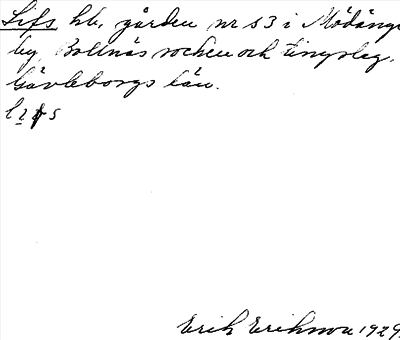 Lifs hb, gården nr 53 i Mödänge
by, Bollnäs socken och tingslag,
Gävleborgs län.
Erik Erikson 1929.